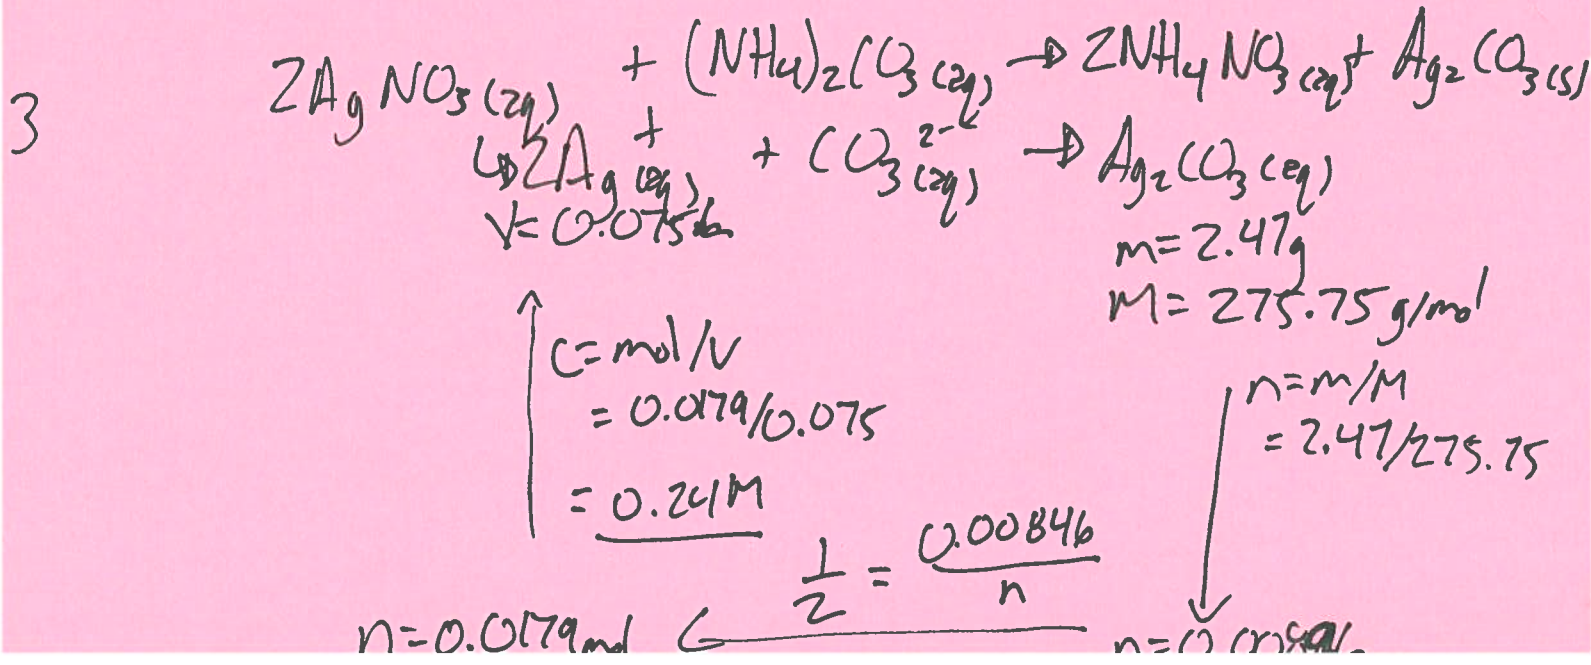 3
2AgNO3(aq) + (NH4)2CO3(aq) → 2NH4NO3(aq) + Ag2CO3(s)
↳ 2Ag+(aq) + CO3 2-(aq) → Ag2CO3(aq)
V=0.075L
m=2.47g
M=275.75g/mol
c=mol/V
=0.0179/0.075
=0.24M
n=m/M
=2.47/275.75
1/2 = 0.00846/n
n=0.0179mol ←